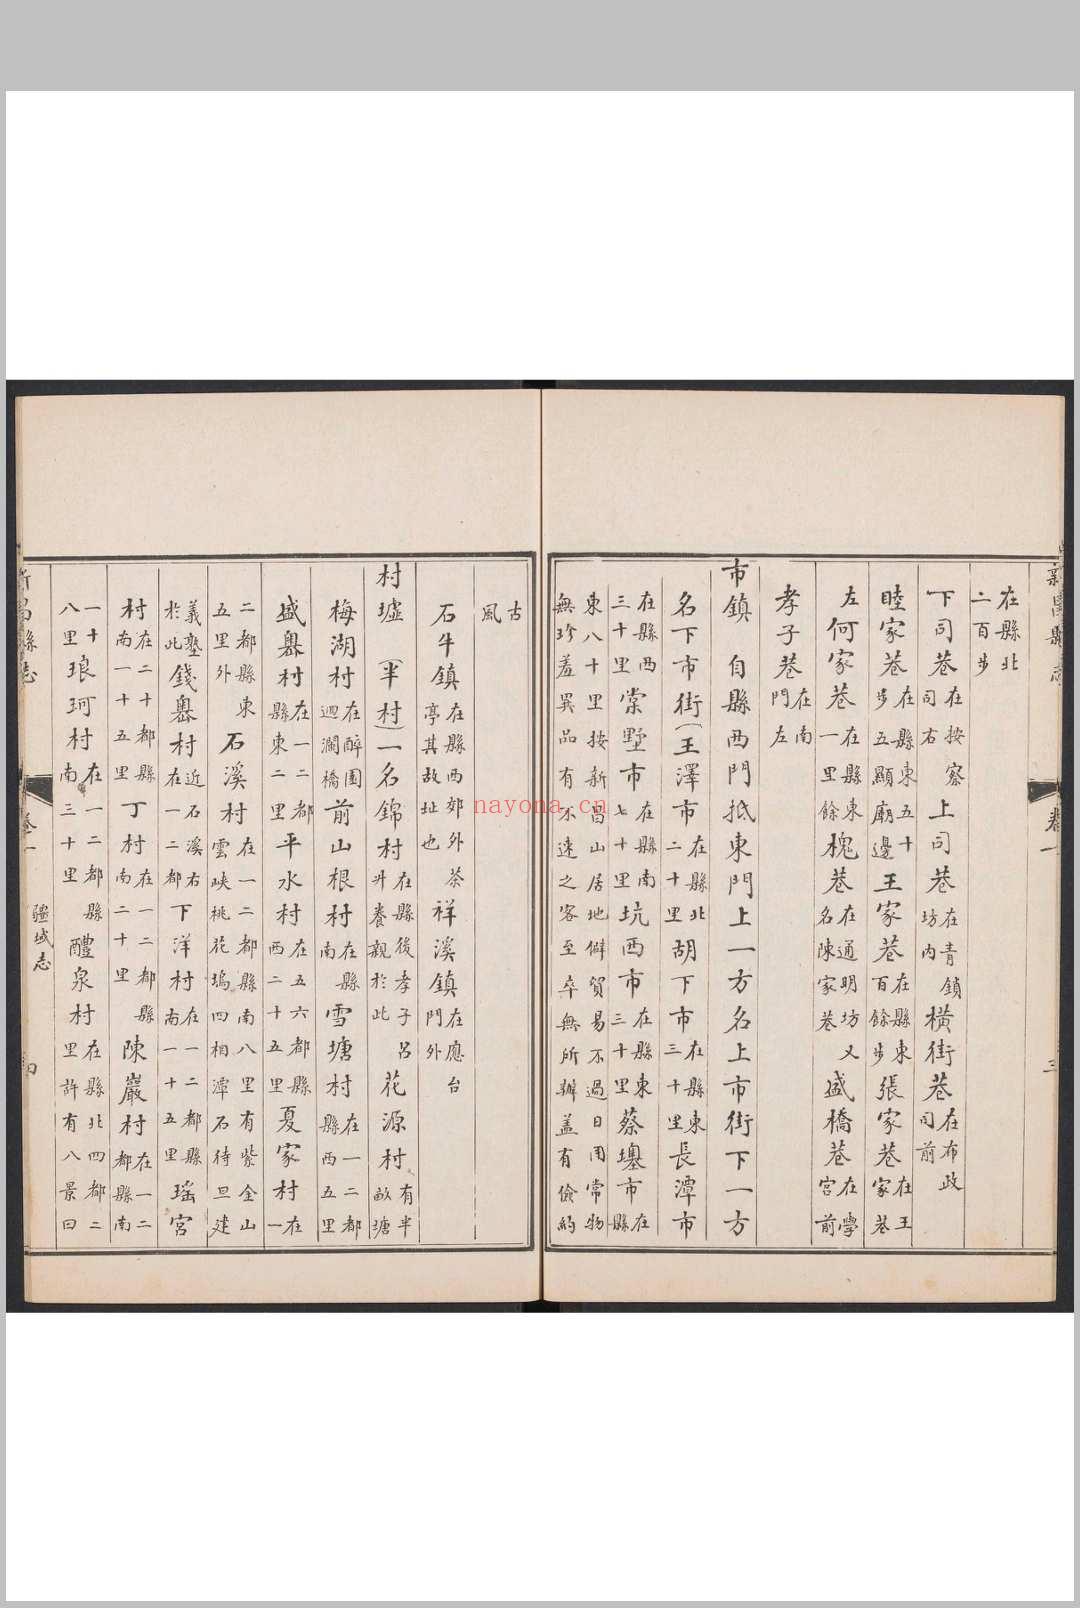 新昌縣志
卷一
三
在縣北
二百步
下司巷在按察司右 上司巷在青鎮坊内 橫街巷在布政司前
睦家巷在縣東五十步五顯廟邊 王家巷在縣東百餘步 張家巷在王家巷
左 何家巷在縣東一里餘 槐巷在通明坊又名陳家巷 盛橋巷在學宮前
孝子巷在南門左
市鎮 自縣西門抵東門上一方名上市街下一方
名下市街(王澤市在縣北二十里 胡卞市在縣東三十里 長潭市
在縣西三十里 棠墅市在縣南七十里 坑西市在縣東三十里 蔡墺市在縣
東八十里按新昌山居地僻貿易不過日用常物
無珍羞異品有不速之客至卒無所辦蓋有儉約
古風
石牛鎮在縣西郊外茶亭其故址也 祥溪鎮在應台門外
村墟 (半村)一名錦村在縣後孝子呂升養親於此 花源村有半畝塘
梅湖村在醉園迴瀾橋 前山根村在縣南 雪塘村在一二都縣西五里
盛輿村在一二都縣東二里 平水村在五六都縣西二十五里 夏家村在一
二都縣東五里外 石溪村在一二都縣南八里有紫金山雲峽桃花塢四相潭石待旦建
義塾於此 錢輿村近石溪右在一二都 下洋村在一二都縣南一十五里 瑤宮
村在二十都縣南一十五里 丁村在一二都縣南二十里 陳巖村在一二都縣南
一十八里 琅珂村在一二都縣南三十里 醴泉村在縣北四都二里許有八景曰
新昌縣志
卷一
疆域志
四
nayona.cn